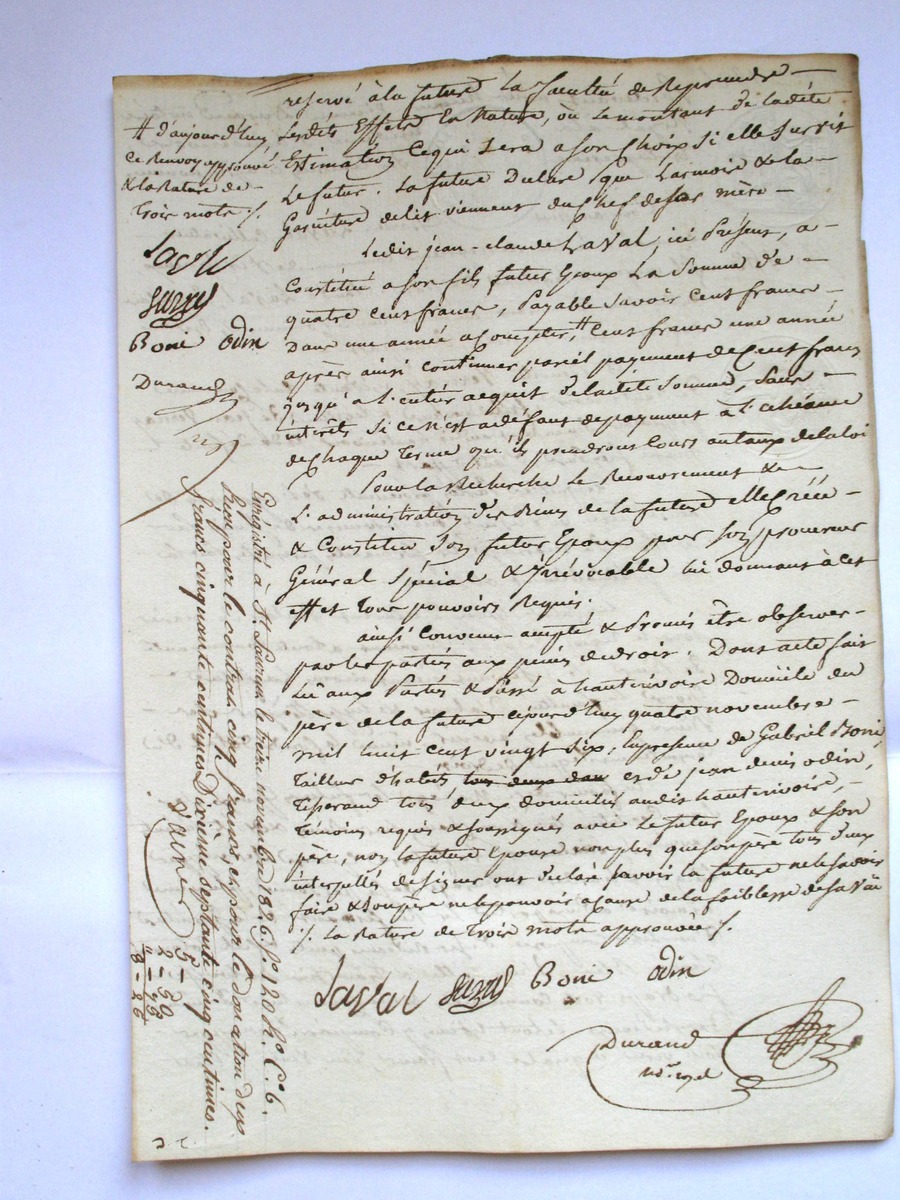 reservé à la future la faculté de Reprendre
lesdits Effets En Nature, où le montant de ladite
Estimation Ce qui sera a son Choix Si elle Survit
Le futur. La future Declare que Larmoire & la
Garniture de lit viennent du Chef de sa mère
Ledit jean-claude Laval, ici présent, a
Constitué a son fils futur Epoux La Somme de
quatre Cent francs, Payable Savoir Cent francs
Dans une année a Compter # Cent francs une année
après ainsi Continuer pareil payement de Cent francs
jusqu'a l'entier acquit de ladite Somme, Sans
intérêts Si ce n'est a défaut de payment à l'echéance
de Chaque Terme qu'ils prendront Cours au taux de la loi
Pour la Recherche Le Recouvrement &
L'administration des Biens de la future elle Créée
& Constitue Son futur Epoux pour Son procureur
Général Spécial & Irrévocable lui donnant à cet
effet Tous pouvoirs Requis.
ainsi Convenu accepté & Promis être observer
par les parties aux peines de droit. Dont acte fait
Lu aux Parties & Passé à hauterivoire Domicile du
père de la future cejourd'huy quatre novembre
mil huit cent vingt six, En presence de Gabriel Boni,
Tailleur d'habits tous deux dom et de jean denis odin,
Tisserand tous deux domiciliés audit hauterivoire,
Témoins requis & soussignés avec Le futur Epoux & son
père, non la future Epouse non plus que son père tous deux
interpellés de signer ont déclaré savoir la future ne le savoir
faire & son père ne le pouvoir a cause de la faiblesse de sa Vüe
/. La Rature de Trois mots approuvée /.
Laval Boni odin
Durand
# d'aujourd'huy
Ce Renvoy approuvé
& la Rature de
Trois mots /.
Laval
Boni odin
Durand
Enregistré à St. Laurent le treize novembre 1826 f. 120 Ro. C. 6.
Reçu pour le contrat cinq francs et pour le donation deux
francs cinquante centimes Dixième septante cinq centimes.
5 -
2 - 50
" - 75
8 - 25